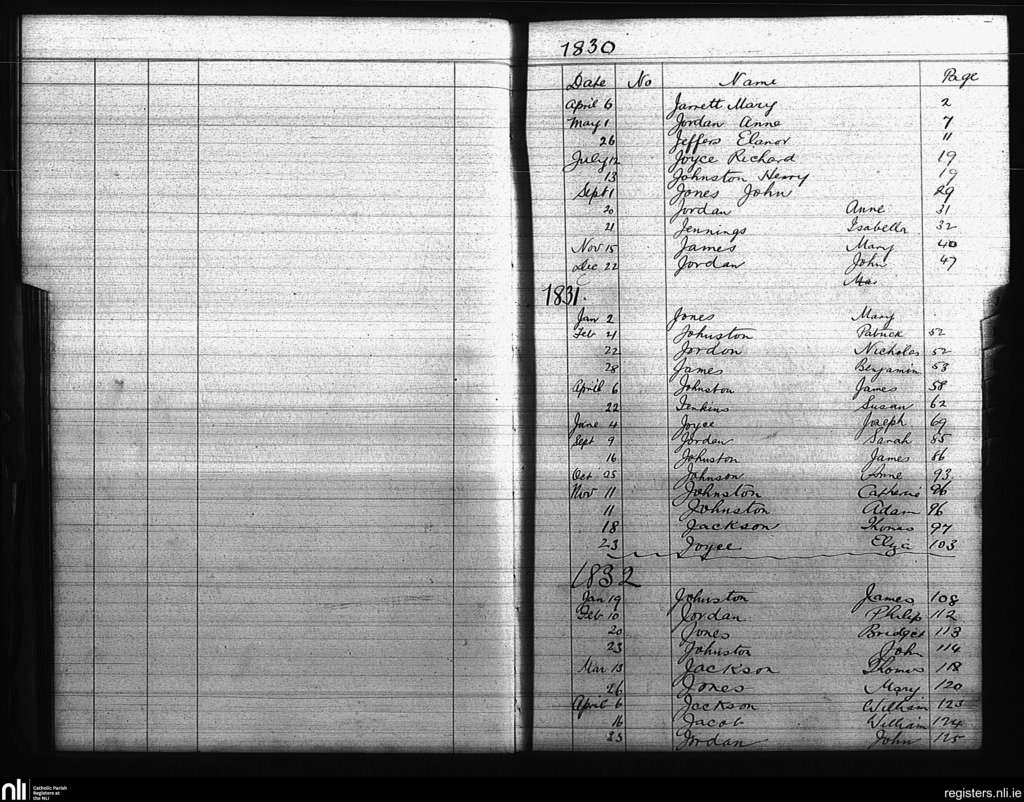 1830
Date No Name Page
April 6 Jarrett Mary 2
May 1 Jordan Anne 7
26 Jeffers Elanor 11
July 12 Joyce Richard 19
13 Johnston Henry 19
Sept 1 Jones John 29
20 Jordan Anne 31
21 Jennings Isabella 32
Nov 15 James Mary 40
Dec 22 Jordan John 47
1831.
Jan 2 Jones Mary
Feb 4 Johnston Patrick 52
22 Jordon Nicholas 52
28 James Benjamin 53
April 6 Johnston James 58
22 Jenkins Susan 62
June 4 Joyce Joseph 69
Sept 9 Jordan Sarah 85
16 Johnston James 86
Oct 25 Johnson Anne 93
Nov 11 Johnston Catherine 96
11 Johnston Adam 96
18 Jackson Thomas 97
23 Joyce Eliza 103
1832
Jan 19 Johnston James 108
Feb 10 Jordan Philip 112
20 Jones Bridget 113
23 Johnston John 114
Mar 13 Jackson Thomas 118
26 Jones Mary 120
April 6 Jackson William 123
16 Jacob William 124
23 Jordan John 125
nli Catholic Parish
Registers at
the NLI
registers.nli.ie